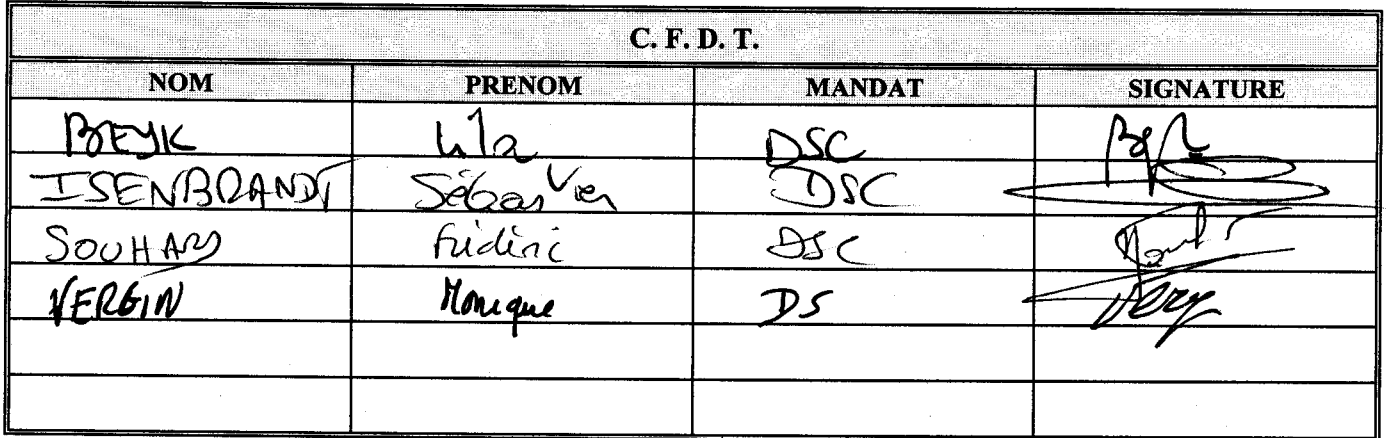 C. F. D. T.
NOM PRENOM MANDAT SIGNATURE
BEYK Lila DSC
ISENBRANDT Sébastien DSC
SOUHARD Frédéric DSC
VERGIN Monique DS